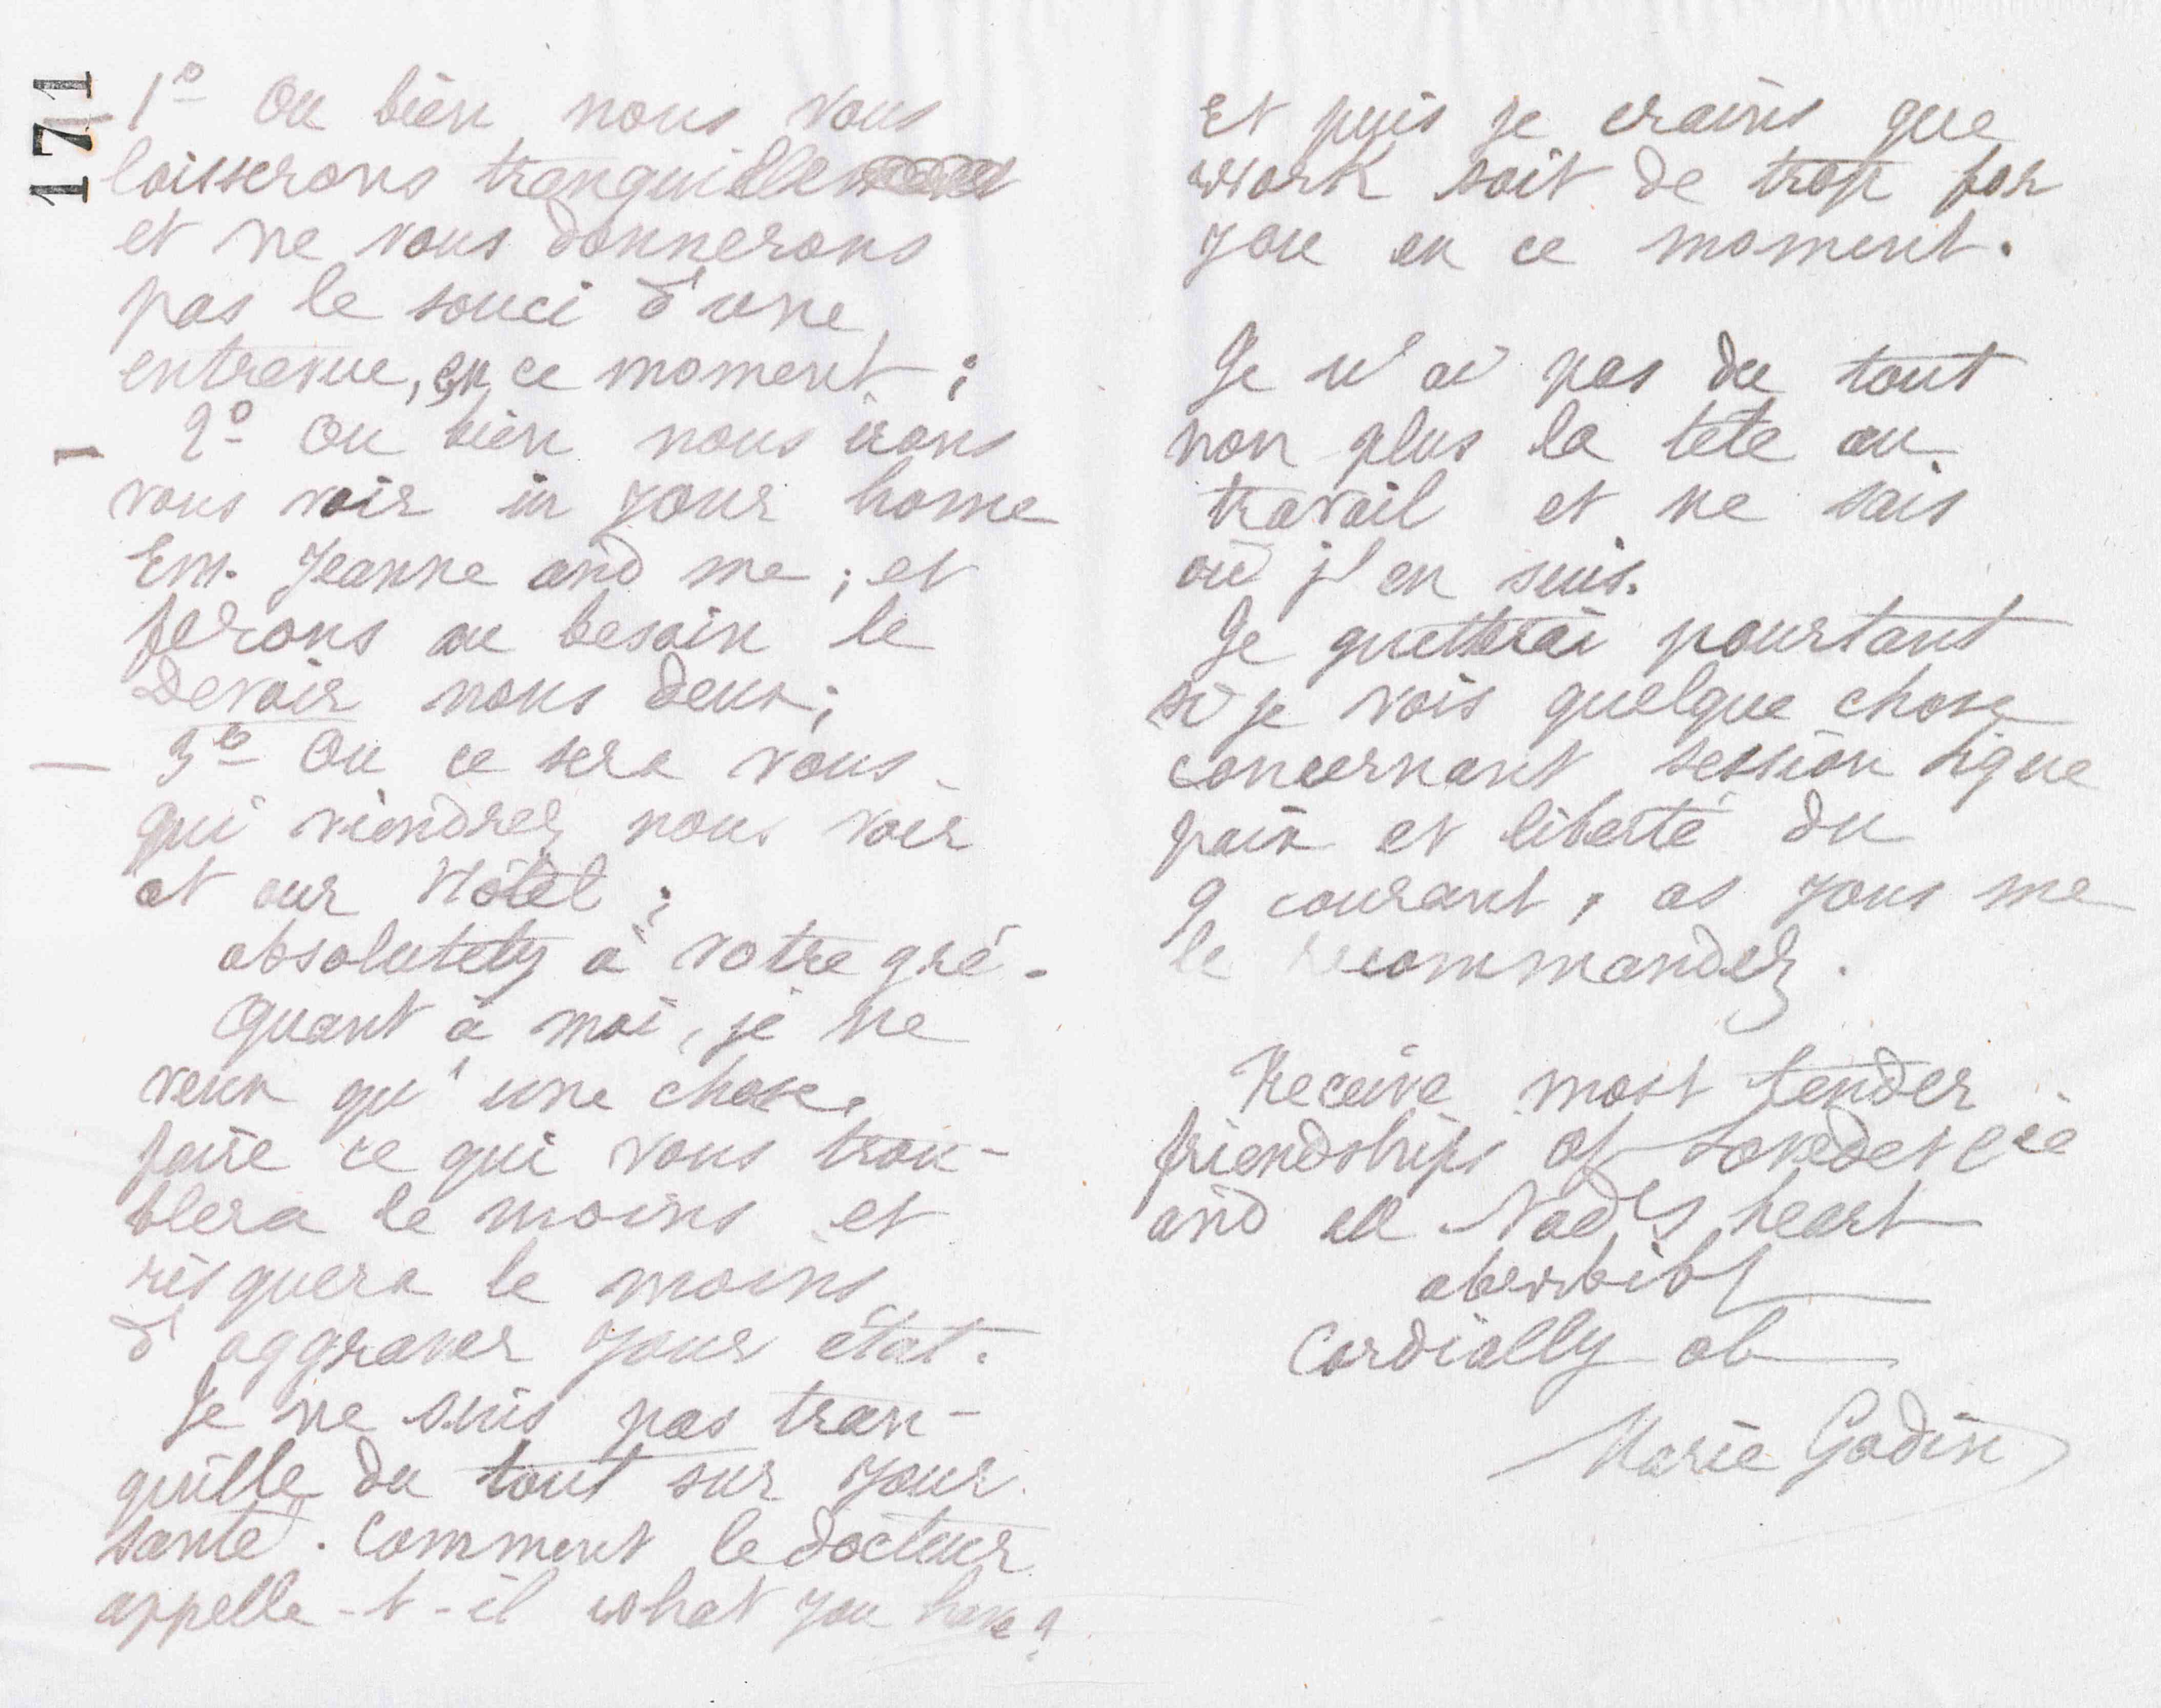 171
1º Ou bien nous vous
laisserons tranquille
et ne vous donnerons
pas le souci d'une
entrevue, en ce moment ;
— 2º Ou bien nous irons
vous voir in your home
Em. Jeanne and me ; et
ferons au besoin le
Devoir nous deux ;
— 3º Ou ce sera vous
qui viendrez nous voir
at our Hôtel ;
absolutely à votre gré.
Quant à moi, je ne
veux qu'une chose,
faire ce qui vous trou-
blera le moins et
risquera le moins
d'aggraver your état.
Je ne suis pas tran-
quille du tout sur your
santé. Comment le docteur
appelle-t-il what you have ?
Et puis je crains que
work soit de trop for
you en ce moment.
Je n'ai pas du tout
non plus la tête au
travail et ne sais
où j'en suis.
Je guetterai pourtant
si je vois quelque chose
concernant session ligue
paix et liberté du
9 courant, as yous me
le recommandez.
Receive most tender
friendships of
and all heart
Cordially
Marie Godin